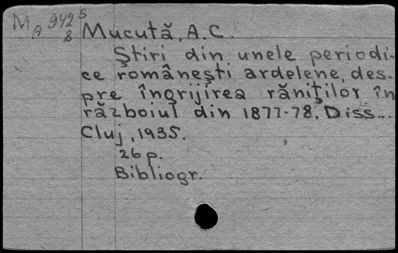 MA 942 5
8
Mucută, A.C.
Ştiri din unele periodi-
ce româneşti ardelene, des-
pre îngrijirea răniţilor în
războiul din 1877-78. Diss...
Cluj, 1935.
26 p.
Bibliogr.